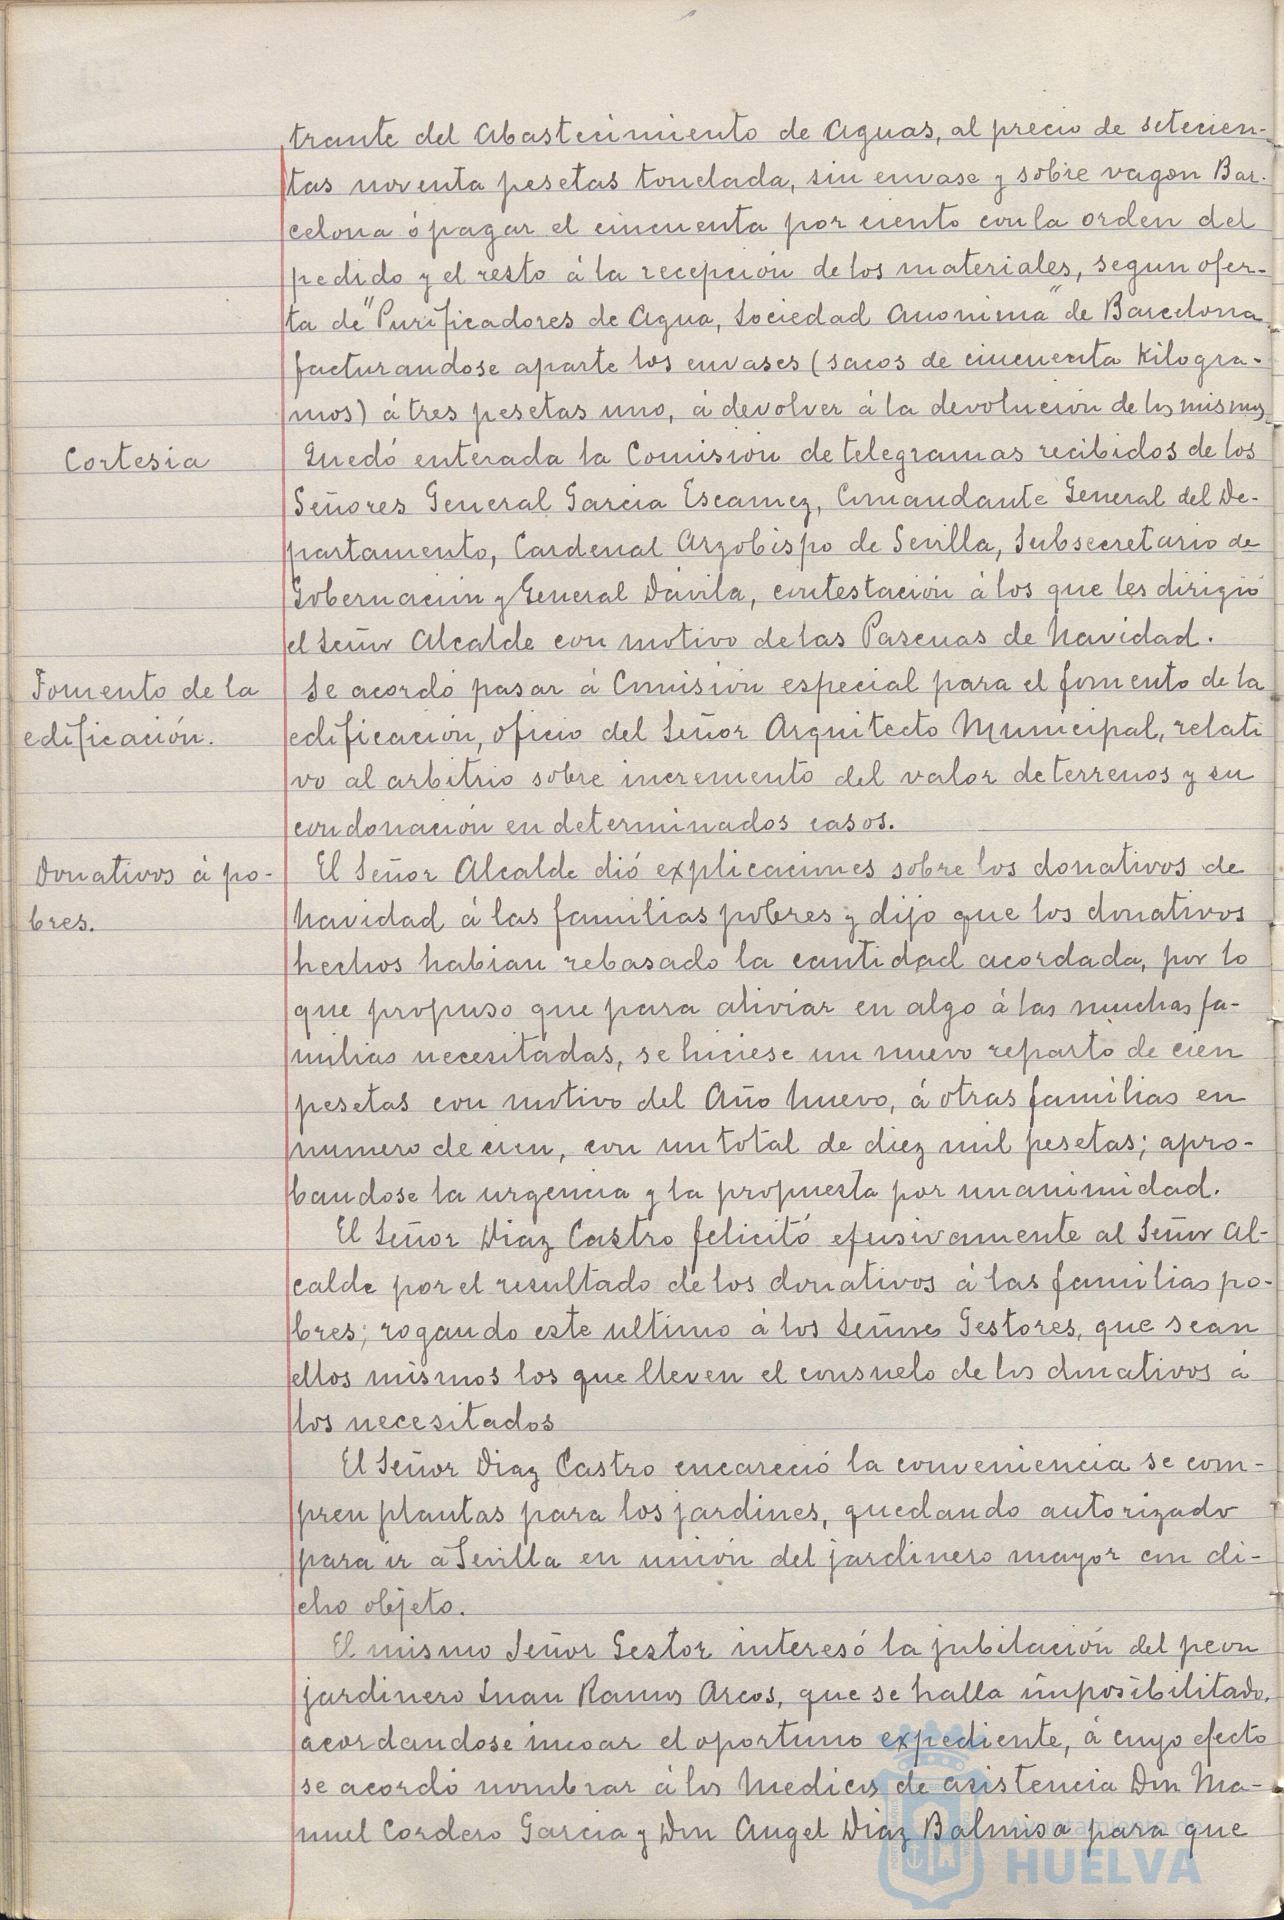 trante del Abastecimiento de Aguas, al precio de setecien-
tas noventa pesetas tonelada, sin envase y sobre vagon Bar-
celona ó pagar el cincuenta por ciento con la orden del
pedido y el resto á la recepción de los materiales, segun ofer-
ta de "Purificadores de Agua, Sociedad Anonima" de Barcelona
facturandose aparte los envases (sacos de cincuenta Kilogra-
mos) á tres pesetas uno, á devolver á la devolución de los mismos.
Cortesia
Quedó enterada la Comision de telegramas recibidos de los
Señores General Garcia Escamez, Comandante General del De-
partamento, Cardenal Arzobispo de Sevilla, Subsecretario de
Gobernación y General Dávila, contestación á los que les dirigió
el Señor Alcalde con motivo de las Pascuas de Navidad.
Fomento de la
edificación.
Se acordó pasar á Comisión especial para el fomento de la
edificación, oficio del Señor Arquitecto Municipal, relati
vo al arbitrio sobre incremento del valor de terrenos y su
condonación en determinados casos.
Donativos á po-
bres.
El Señor Alcalde dió explicaciones sobre los donativos de
Navidad á las familias pobres y dijo que los donativos
hechos habian rebasado la cantidad acordada, por lo
que propuso que para aliviar en algo á las muchas fa-
milias necesitadas, se hiciese un nuevo reparto de cien
pesetas con motivo del Año Nuevo, á otras familias en
numero de cien, con un total de diez mil pesetas; apro-
bandose la urgencia y la propuesta por unanimidad.
El Señor Diaz Castro felicitó efusivamente al Señor Al-
calde por el resultado de los donativos á las familias po-
bres; rogando este ultimo á los Señores Gestores, que sean
ellos mismos los que lleven el consuelo de los donativos á
los necesitados
El Señor Diaz Castro encareció la conveniencia se com-
pren plantas para los jardines, quedando autorizado
para ir a Sevilla en unión del jardinero mayor con di-
cho objeto.
El mismo Señor Gestor interesó la jubilación del peon
jardinero Juan Ramos Arcos, que se halla imposibilitado,
acordandose incoar el oportuno expediente, á cuyo efecto
se acordó nombrar á los Medicos de asistencia Don Ma-
nuel Cordero Garcia y Don Angel Diaz Balmisa para que
Ayuntamiento de
HUELVA